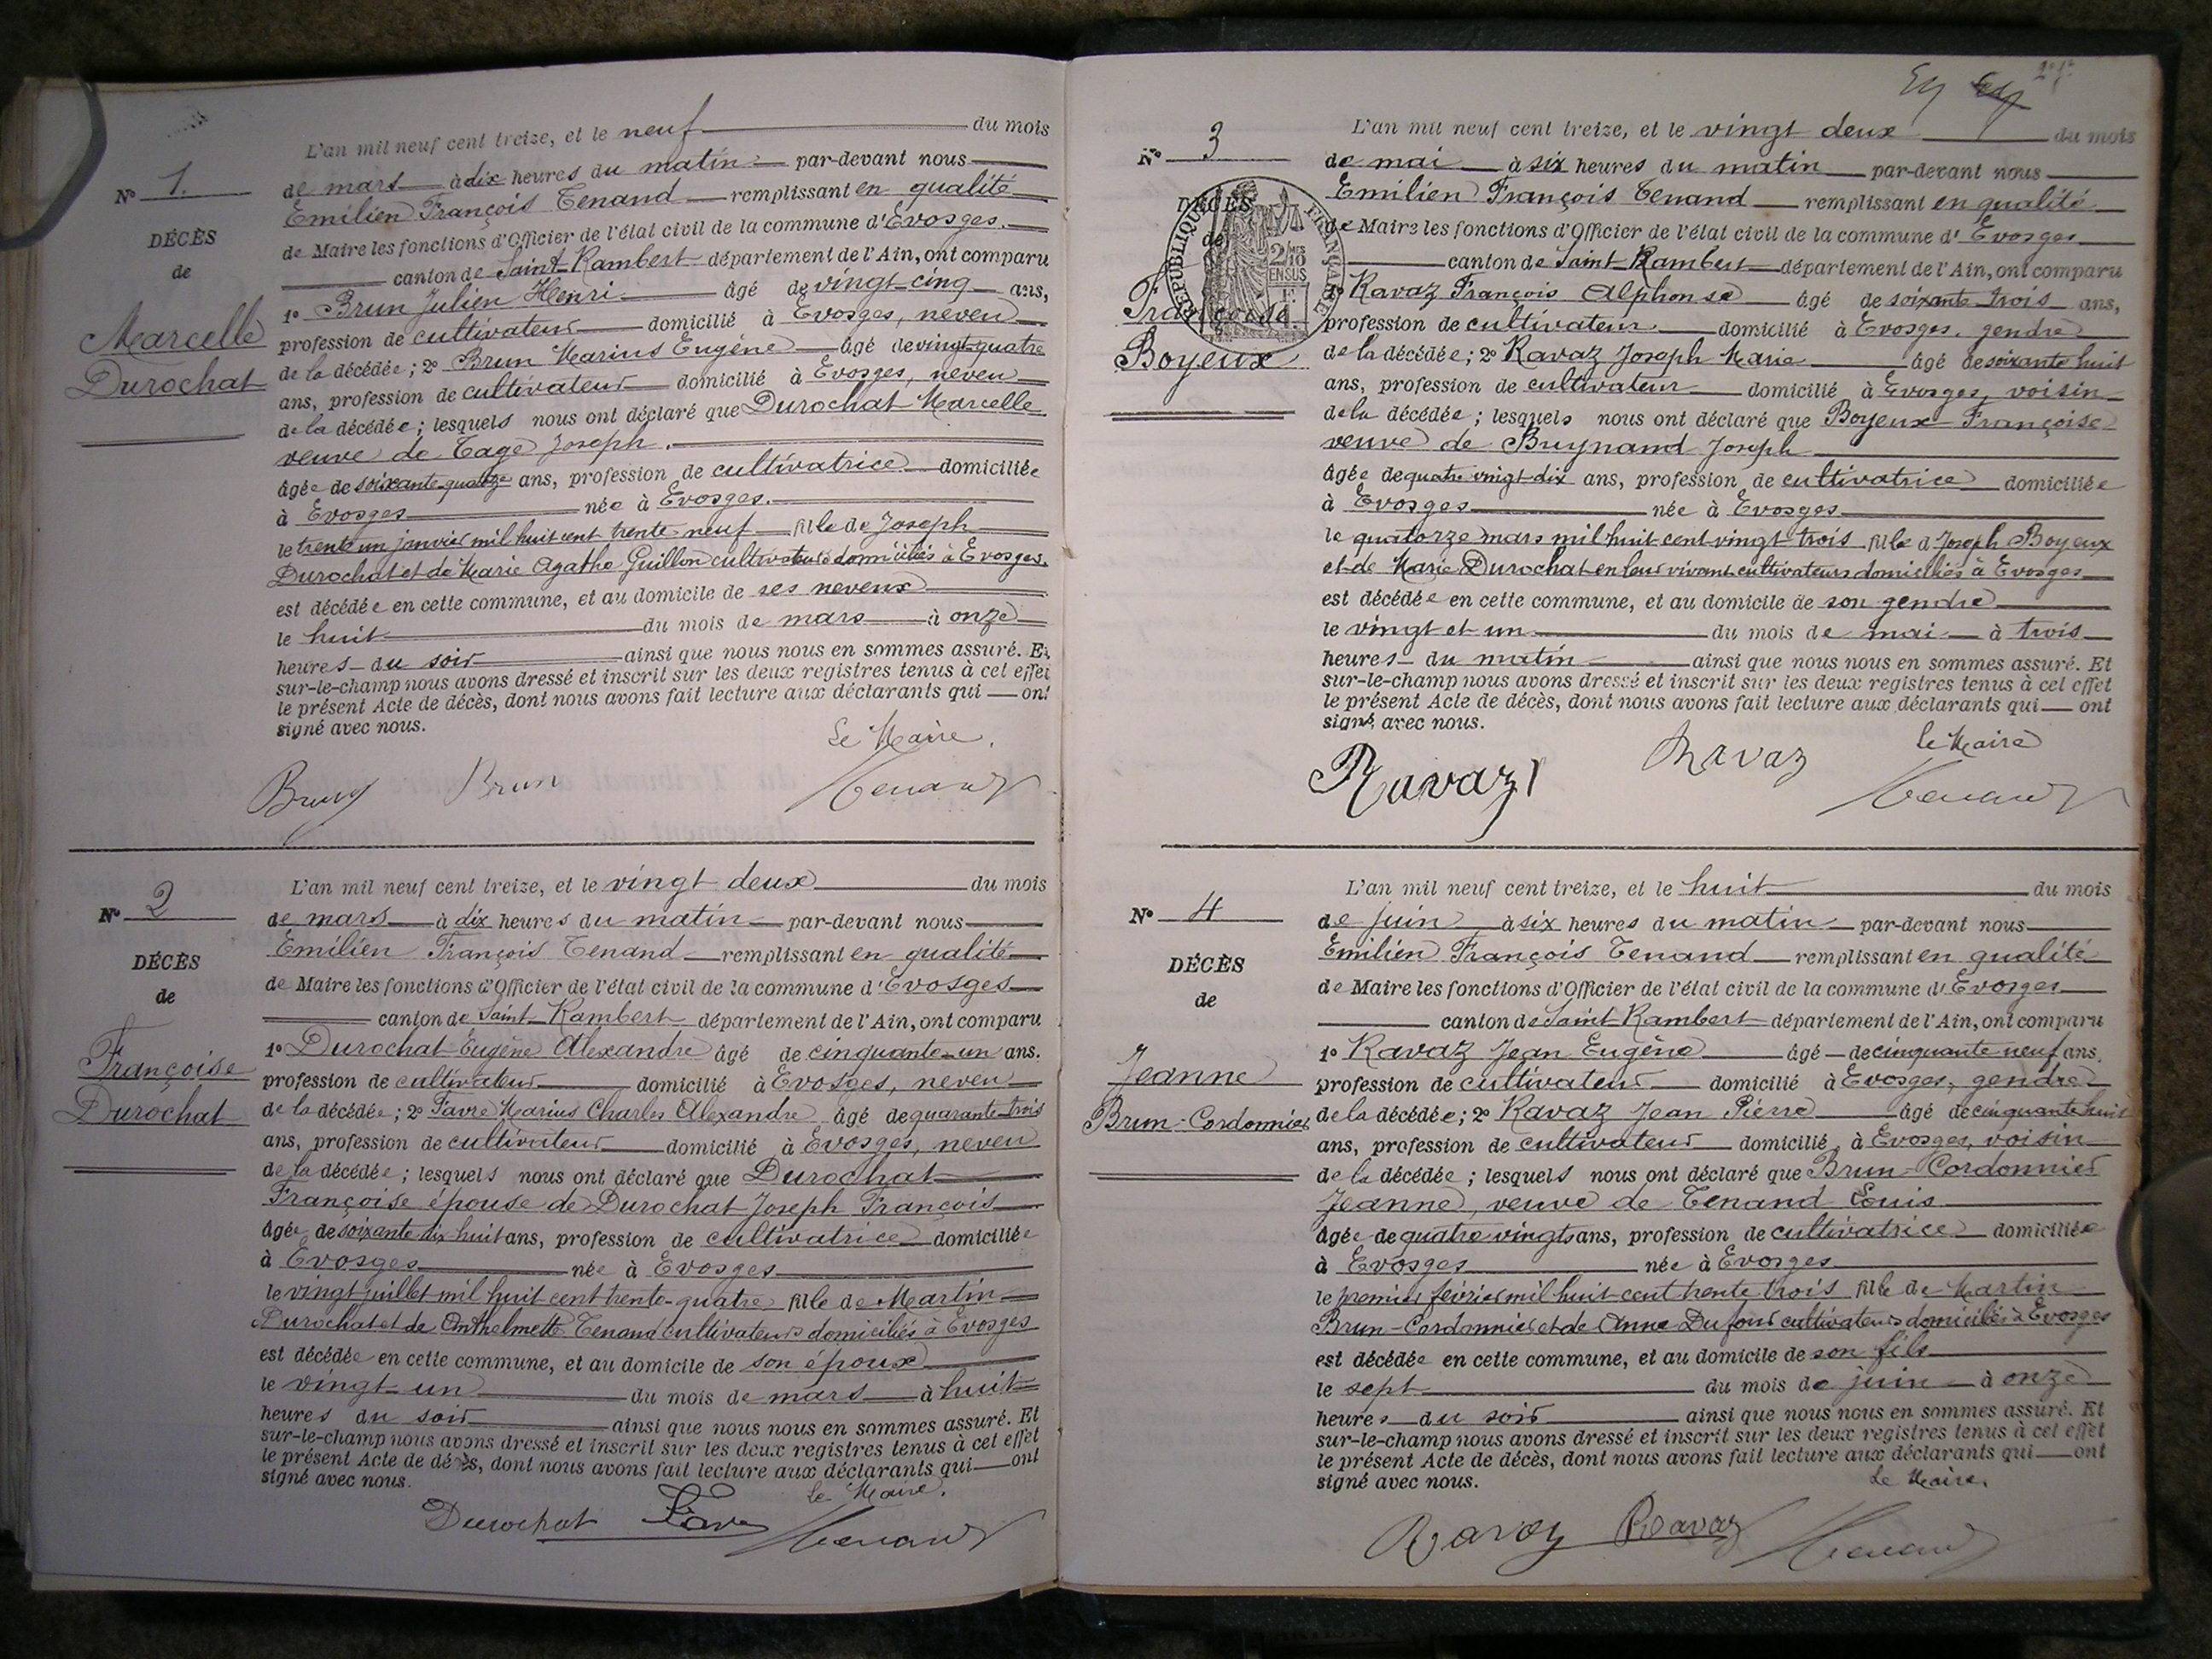 L'an mil neuf cent treize, et le neuf du mois
Nº 1.
DÉCÈS
de
Marcelle
Durochat
de mars à dix heures du matin par-devant nous
Emilien François Tenand remplissant en qualité
de Maire les fonctions d'Officier de l'état civil de la commune d'Evosges.
canton de Saint-Rambert département de l'Ain, ont comparu
1º Brun Julien Henri âgé de vingt-cinq ans,
profession de cultivateur domicilié à Evosges, neveu
de la décédée; 2º Brun Marius Eugène âgé de vingt-quatre
ans, profession de cultivateur domicilié à Evosges, neveu
de la décédée; lesquels nous ont déclaré que Durochat Marcelle
veuve de Tage Joseph.
âgée de soixante-quatorze ans, profession de cultivatrice domiciliée
à Evosges née à Evosges.
le trente un janvier mil huit cent trente neuf fille de Joseph
Durochat et de Marie Agathe Guillon cultivateurs domiciliés à Evosges.
est décédée en cette commune, et au domicile de ses neveux
le huit du mois de mars à onze
heures du soir ainsi que nous nous en sommes assuré. Et
sur-le-champ nous avons dressé et inscrit sur les deux registres tenus à cet effet
le présent Acte de décès, dont nous avons fait lecture aux déclarants qui ont
signé avec nous.
Le Maire.
Brun Brun Tenand
L'an mil neuf cent treize, et le vingt deux du mois
Nº 2
DÉCÈS
de
Françoise
Durochat
de mars à dix heures du matin par-devant nous
Emilien François Tenand remplissant en qualité
de Maire les fonctions d'Officier de l'état civil de la commune d'Evosges
canton de Saint-Rambert département de l'Ain, ont comparu
1º Durochat Eugène Alexandre âgé de cinquante-un ans.
profession de cultivateur domicilié à Evosges, neveu
de la décédée; 2º Favre Marius Charles Alexandre âgé de quarante-trois
ans, profession de cultivateur domicilié à Evosges, neveu
de la décédée; lesquels nous ont déclaré que Durochat
Françoise épouse de Durochat Joseph François
âgée de soixante dix huit ans, profession de cultivatrice domiciliée
à Evosges née à Evosges
le vingt juillet mil huit cent trente-quatre fille de Martin
Durochat et de Anthelmette Tenand cultivateurs domiciliés à Evosges
est décédée en cette commune, et au domicile de son époux
le vingt-un du mois de mars à huit
heures du soir ainsi que nous nous en sommes assuré. Et
sur-le-champ nous avons dressé et inscrit sur les deux registres tenus à cet effet
le présent Acte de décès, dont nous avons fait lecture aux déclarants qui ont
signé avec nous.
Le Maire.
Durochat Favre Tenand
L'an mil neuf cent treize, et le vingt deux du mois
Nº 3
DÉCÈS
de
Françoise
Boyeux
RÉPUBLIQUE FRANÇAISE
2/10
EN SUS
de mai à six heures du matin par-devant nous
Emilien François Tenand remplissant en qualité
de Maire les fonctions d'Officier de l'état civil de la commune d'Evosges
canton de Saint-Rambert département de l'Ain, ont comparu
1º Ravaz François Alphonse âgé de soixante trois ans,
profession de cultivateur domicilié à Evosges, gendre
de la décédée; 2º Ravaz Joseph Marie âgé de soixante huit
ans, profession de cultivateur domicilié à Evosges, voisin
de la décédée; lesquels nous ont déclaré que Boyeux Françoise
veuve de Buynand Joseph
âgée de quatre vingt-dix ans, profession de cultivatrice domiciliée
à Evosges née à Evosges
le quatorze mars mil huit cent vingt trois fille d Joseph Boyeux
et de Marie Durochat en leur vivant cultivateurs domiciliés à Evosges
est décédée en cette commune, et au domicile de son gendre
le vingt et un du mois de mai à trois
heures du matin ainsi que nous nous en sommes assuré. Et
sur-le-champ nous avons dressé et inscrit sur les deux registres tenus à cet effet
le présent Acte de décès, dont nous avons fait lecture aux déclarants qui ont
signé avec nous.
Le Maire
Ravaz Ravaz Tenand
L'an mil neuf cent treize, et le huit du mois
Nº 4
DÉCÈS
de
Jeanne
Brun-Cordonnier
de juin à six heures du matin par-devant nous
Emilien François Tenand remplissant en qualité
de Maire les fonctions d'Officier de l'état civil de la commune d'Evosges
canton de Saint-Rambert département de l'Ain, ont comparu
1º Ravaz Jean Eugène âgé de cinquante neuf ans,
profession de cultivateur domicilié à Evosges, gendre
de la décédée; 2º Ravaz Jean Pierre âgé de cinquante huit
ans, profession de cultivateur domicilié à Evosges, voisin
de la décédée; lesquels nous ont déclaré que Brun-Cordonnier
Jeanne, veuve de Tenand Louis
âgée de quatre vingts ans, profession de cultivatrice domiciliée
à Evosges née à Evosges
le premier février mil huit cent trente trois fille de Martin
Brun-Cordonnier et de Anne Dufour cultivateurs domiciliés à Evosges
est décédée en cette commune, et au domicile de son fils
le sept du mois de juin à onze
heures du soir ainsi que nous nous en sommes assuré. Et
sur-le-champ nous avons dressé et inscrit sur les deux registres tenus à cet effet
le présent Acte de décès, dont nous avons fait lecture aux déclarants qui ont
signé avec nous.
Le Maire.
Ravaz Ravaz Tenand